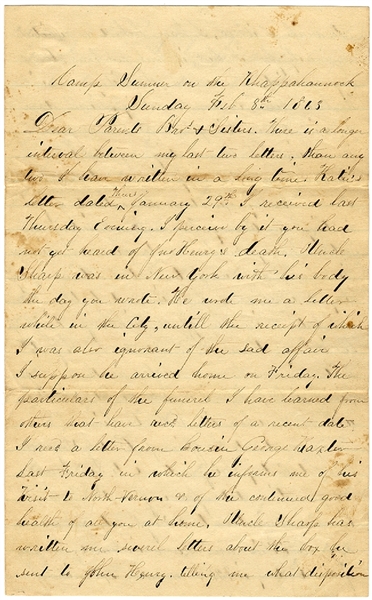 Camp Sumner on the Rhappahannock
Sunday Feb 8th 1863
Dear Parents Bro's & Sisters. There is a longer
interval between my last two letters, than any
two I have written in a long time. Kate's
letter dated Thurs January 29th I received last
Thursday Evening. I perceive by it you had
not yet heard of Jno Henry's death. Uncle
Sharp was in New York with his body
the day you wrote. He wrote me a letter
while in the City, untill the receipt of which
I was also ignorant of the sad affair
I suppose he arrived home on Friday. The
particulars of the funeral I have learned from
others that have recd letters of a recent date
I recd a letter from Cousin George
last Friday in which he informs me of his
visit to North Vernon & of the continued good
health of all you at home. Uncle Sharp has
written me several letters about the box he
sent to John Henry. telling me what disposition